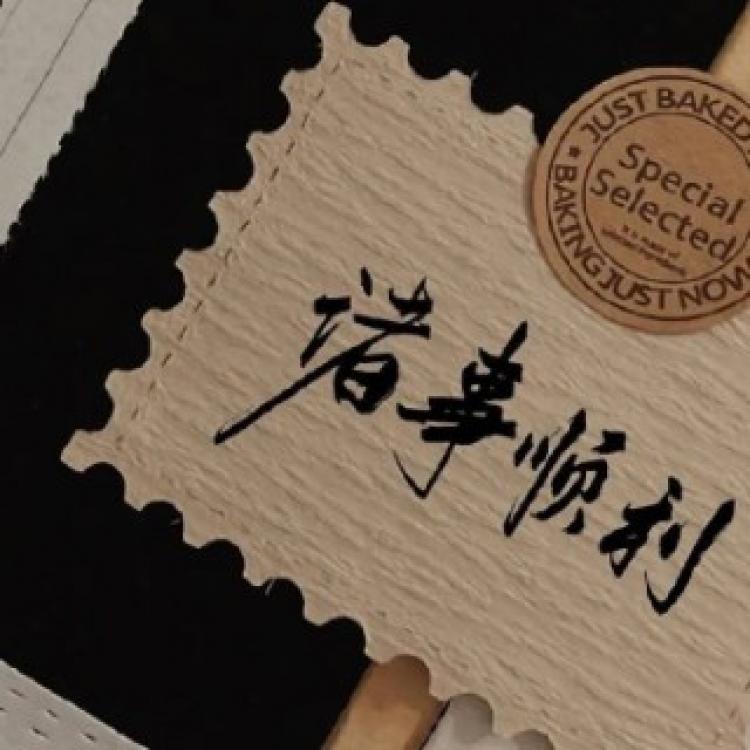 JUST BAKED
Special
Selected
BAKING JUST NOW
诸事顺利